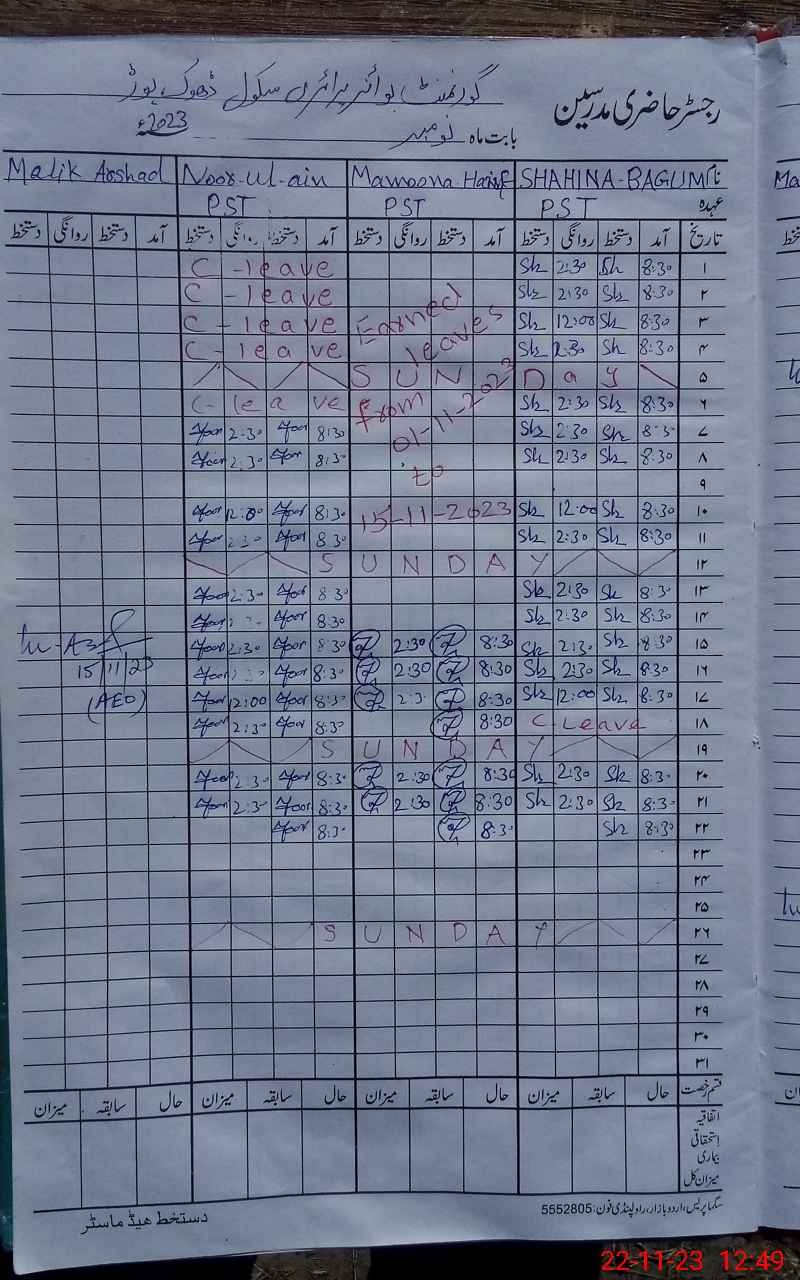 رجسٹر حاضری مدرسین
گورنمنٹ بوائز پرائمری سکول ڈھوک
بابت ماہ نومبر 2023ء
نام SHAHINA-BAGUM Mamoona Hanif Noor-ul-ain Malik Arshad
عہدہ PST PST PST
تاریخ آمد دستخط روانگی دستخط آمد دستخط روانگی دستخط آمد دستخط روانگی دستخط آمد دستخط روانگی دستخط
۱ 8:30 Sh 2:30 Sh C-leave
۲ 8:30 Sh 2:30 Sh C-leave
۳ 8:30 Sh 12:00 Sh Earned C-leave
۴ 8:30 Sh 2:30 Sh leaves C-leave
۵ SUNDay
۶ 8:30 Sh 2:30 Sh from C-leave
۷ 8:30 Sh 2:30 Sh 01-11-2023 8:30 Noor 2:30 Noor
۸ 8:30 Sh 2:30 Sh to 8:30 Noor 2:30 Noor
۹
۱۰ 8:30 Sh 12:00 Sh 15-11-2023 8:30 Noor 12:00 Noor
۱۱ 8:30 Sh 2:30 Sh 8:30 Noor 2:30 Noor
۱۲ SUNDAY
۱۳ 8:30 Sh 2:30 Sh 8:30 Noor 2:30 Noor
۱۴ 8:30 Sh 2:30 Sh 8:30 Noor 2:30 Noor
۱۵ 8:30 Sh 2:30 Sh 8:30 2:30 8:30 Noor 2:30 Noor
۱۶ 8:30 Sh 2:30 Sh 8:30 2:30 8:30 Noor 2:30 Noor 15/11/23
۱۷ 8:30 Sh 12:00 Sh 8:30 2:30 8:30 Noor 12:00 Noor (AEO)
۱۸ C-Leave 8:30 8:30 Noor 2:30 Noor
۱۹ SUNDAY
۲۰ 8:30 Sh 2:30 Sh 8:30 2:30 8:30 Noor 2:30 Noor
۲۱ 8:30 Sh 2:30 Sh 8:30 2:30 8:30 Noor 2:30 Noor
۲۲ 8:30 Sh 8:30 8:30 Noor
۲۳
۲۴
۲۵
۲۶ SUNDAY
۲۷
۲۸
۲۹
۳۰
۳۱
قسم رخصت حال سابقہ میزان حال سابقہ میزان حال سابقہ میزان حال سابقہ میزان
اتفاقیہ
استحقاقی
بیماری
میزان کل
پریس، اردو بازار، راولپنڈی فون: 5552805
دستخط ھیڈ ماسٹر
22-11-23 12:49